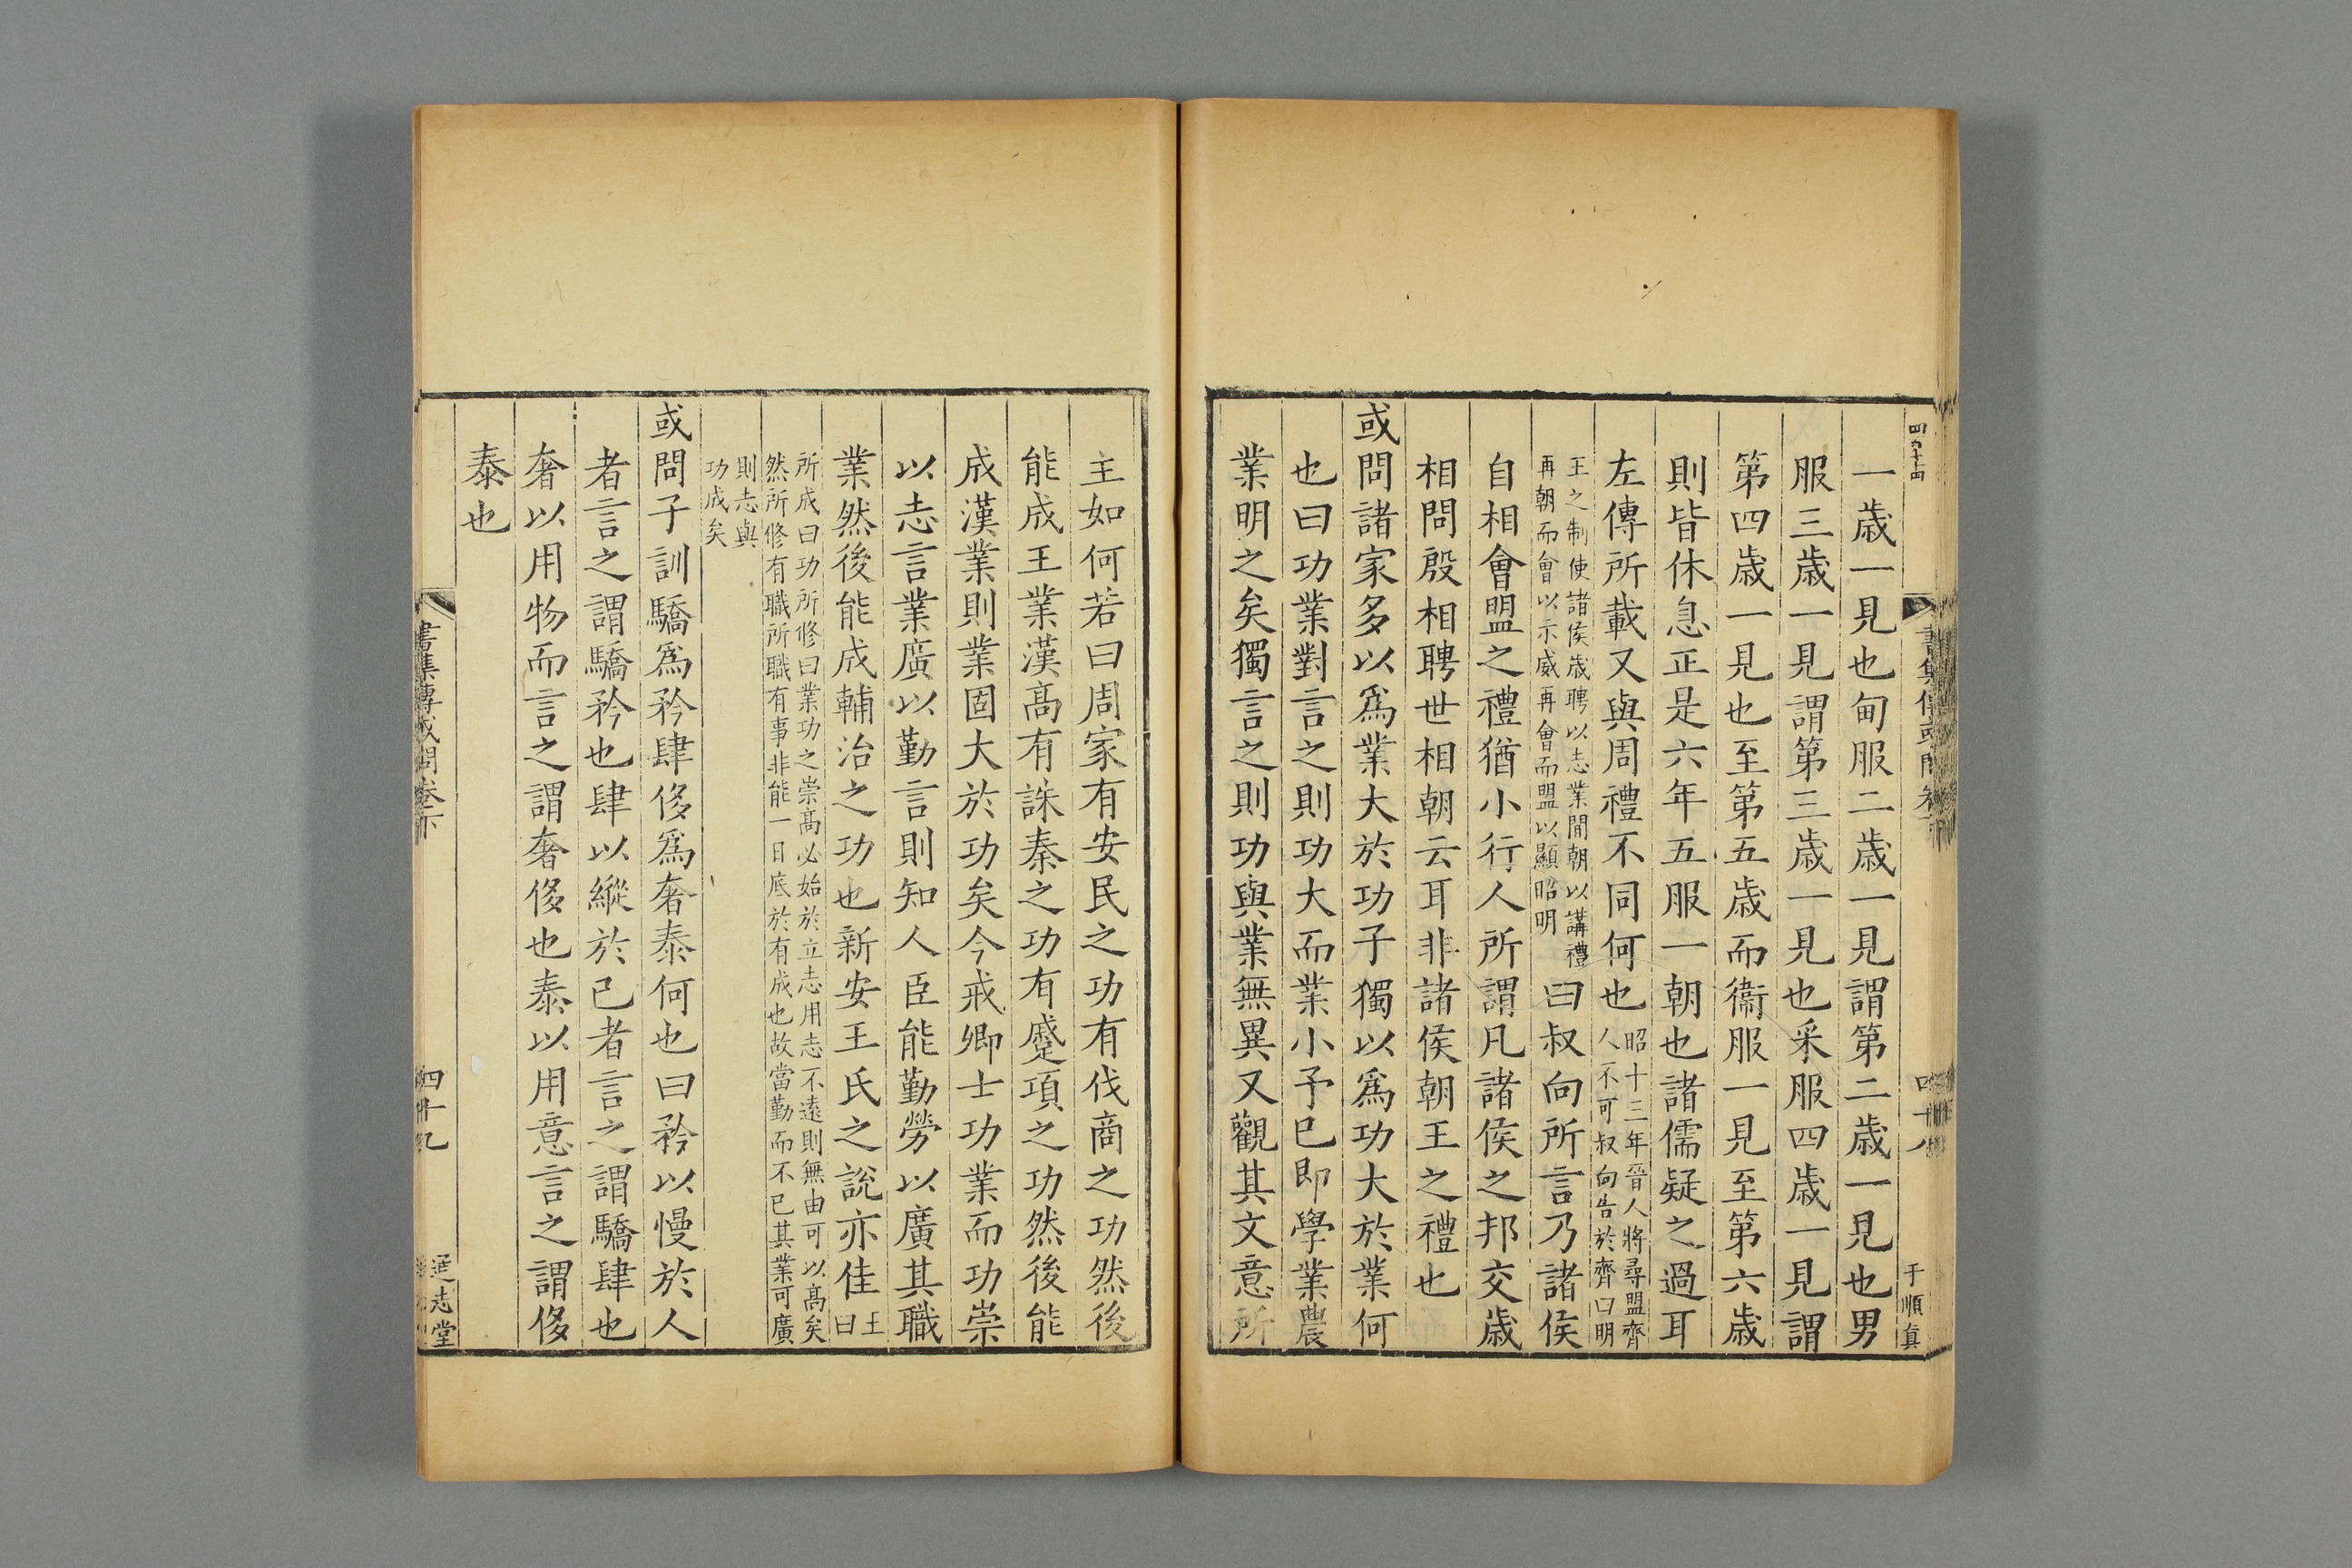 一歲一見也甸服二歲一見謂第二歲一見也男
服三歲一見謂第三歲一見也采服四歲一見謂
第四歲一見也至第五歲而衞服一見至第六歲
則皆休息正是六年五服一朝也諸儒疑之過耳
左傳所載又與周禮不同何也昭十三年晉人將尋盟齊
人不可叔向告於齊曰明
王之制使諸侯歲聘以志業閒朝以講禮
再朝而會以示威再會而盟以顯昭明
曰叔向所言乃諸侯
自相會盟之禮猶小行人所謂凡諸侯之邦交歲
相問殷相聘世相朝云耳非諸侯朝王之禮也
或問諸家多以爲業大於功子獨以爲功大於業何
也曰功業對言之則功大而業小予巳即學業農
業明之矣獨言之則功與業無異又觀其文意所
于順真
主如何若曰周家有安民之功有伐商之功然後
能成王業漢高有誅秦之功有蹙項之功然後能
成漢業則業固大於功矣今戒卿士功業而功崇
以志言業廣以勤言則知人臣能勤勞以廣其職
業然後能成輔治之功也新安王氏之說亦佳王
曰
所成曰功所修曰業功之崇高必始於立志用志不遠則無由可以高矣
然所修有職所職有事非能一日底於有成也故當勤而不已其業可廣
則志與
功成矣
或問子訓驕爲矜肆侈爲奢泰何也曰矜以慢於人
者言之謂驕矜也肆以縱於己者言之謂驕肆也
奢以用物而言之謂奢侈也泰以用意言之謂侈
泰也
書集傳或問卷下
四十九
通志堂